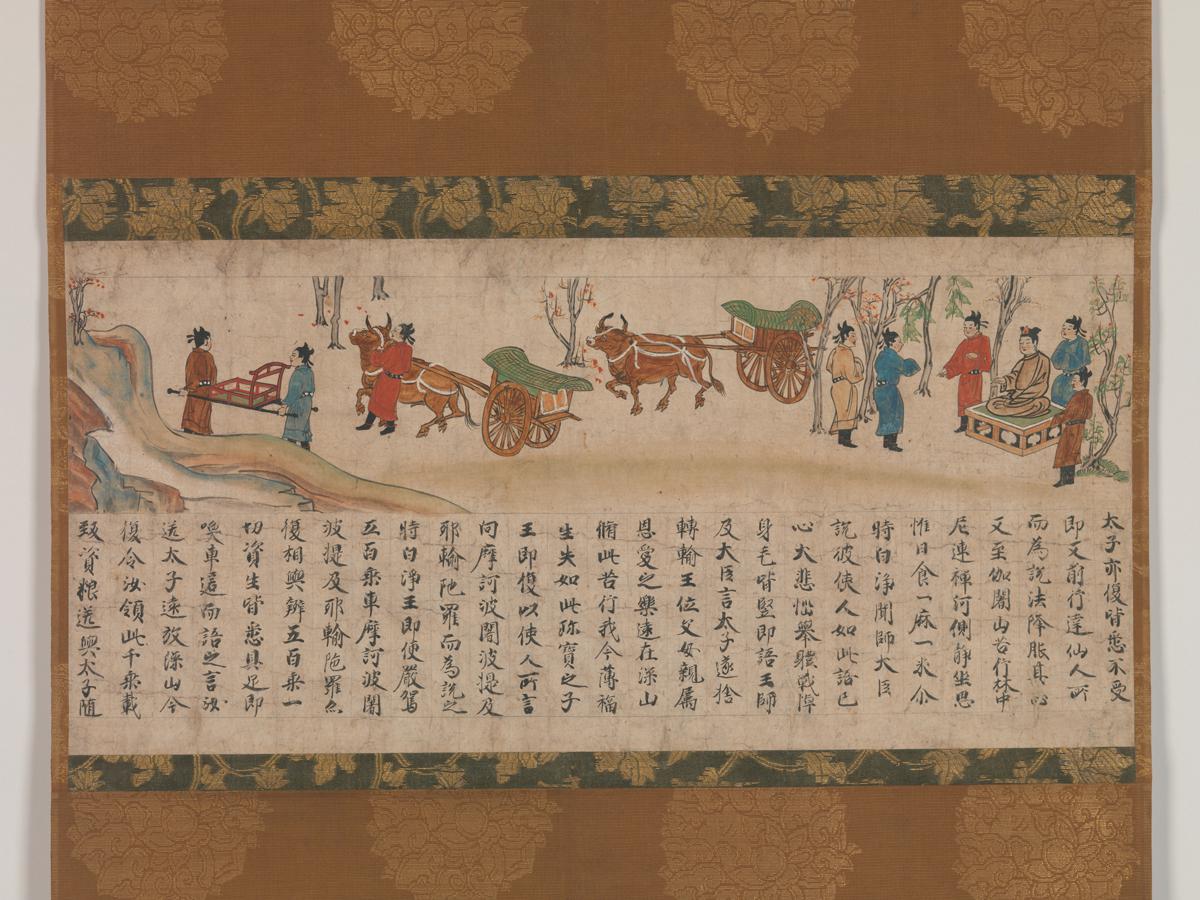 太子亦復皆悉不受
即又前行達仙人所
而為說法降伏其心
又至伽闍山苦行林中
尼連禪河側靜坐思
惟日食一麻一米尒
時白淨聞師大臣
說彼使人如此語已
心大悲惱舉體戰悼
身毛皆竪即語王師
及大臣言太子遂捨
轉輪王位父母親属
恩愛之樂遠在深山
脩此苦行我今薄福
生失如此珎寶之子
王即復以使人所言
向摩訶波闍波提及
耶輸陁羅而為說之
時白淨王即便嚴駕
五百乘車摩訶波闍
波提及耶輸陁羅
復相與辦五百乘一
切資生皆悉具足即
喚車還而語之言汝
送太子遠放深山今
復令汝領此千乘載
致資粮送與太子随